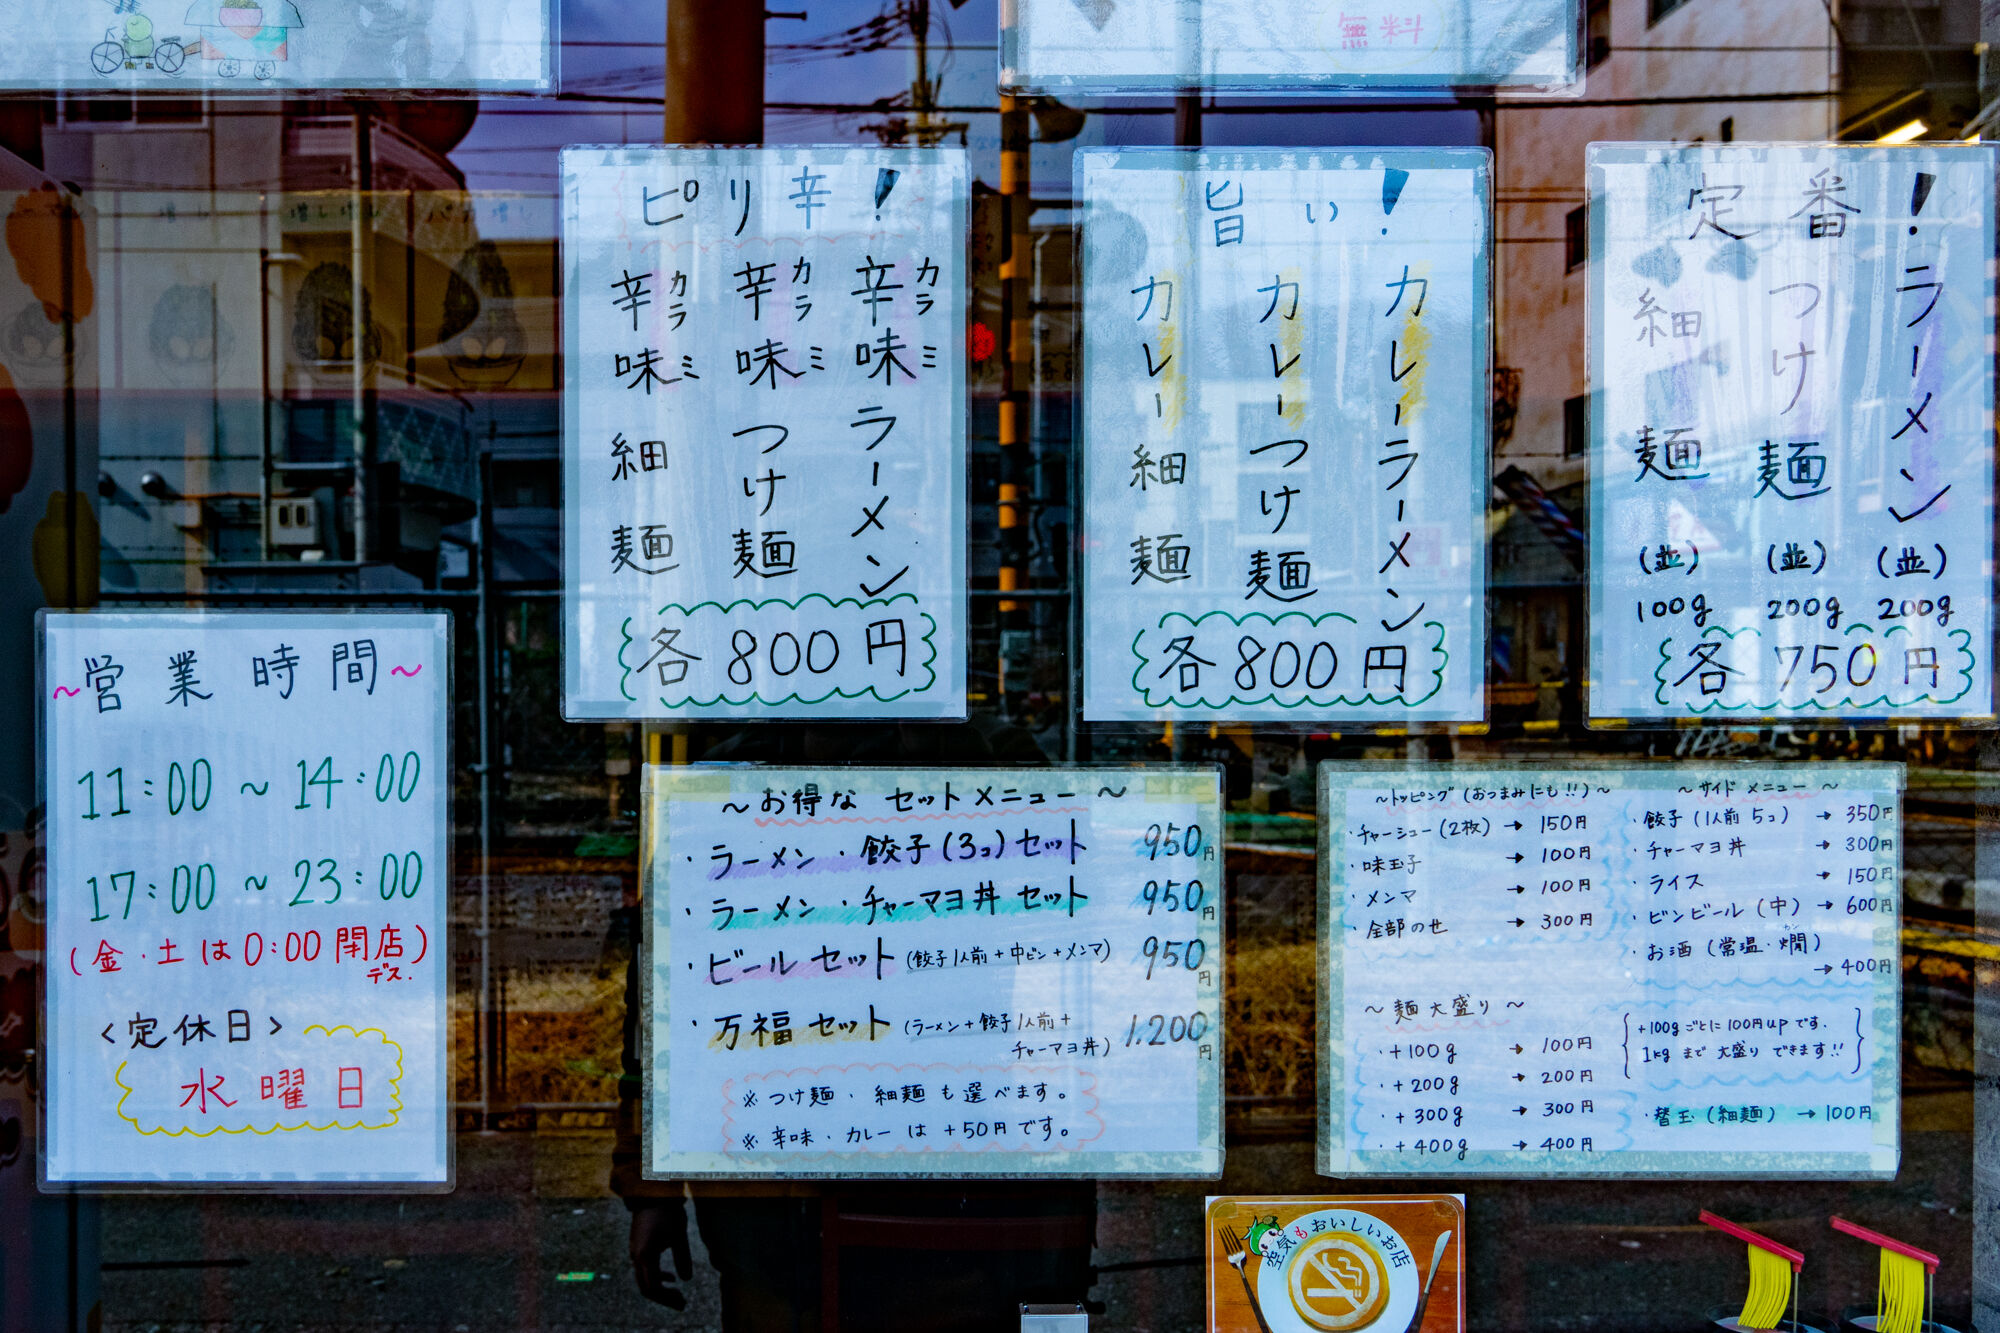 無料
ピリ辛!
辛味ラーメン
カラミ
辛味つけ麺
カラミ
辛味細麺
カラミ
各800円
旨い!
カレーラーメン
カレーつけ麺
カレー細麺
各800円
定番!
ラーメン(並)200g
つけ麺(並)200g
細麺(並)100g
各750円
~営業時間~
11:00~14:00
17:00~23:00
(金・土は0:00閉店)
デス.
<定休日>
水曜日
~お得なセットメニュー~
・ラーメン・餃子(3コ)セット 950円
・ラーメン・チャーマヨ丼セット 950円
・ビールセット(餃子1人前+中ビン+メンマ) 950円
・万福セット(ラーメン+餃子1人前+
チャーマヨ丼) 1,200円
※つけ麺・細麺も選べます。
※辛味・カレーは+50円です。
~トッピング(おつまみにも!!)~
・チャーシュー(2枚)→150円
・味玉子→100円
・メンマ→100円
・全部のせ→300円
~サイドメニュー~
・餃子(1人前5コ)→350円
・チャーマヨ丼→300円
・ライス→150円
・ビンビール(中)→600円
・お酒(常温・燗)
カン
→400円
~麺大盛り~
・+100g→100円
・+200g→200円
・+300g→300円
・+400g→400円
+100gごとに100円upです.
1kgまで大盛りできます!!
・替玉(細麺)→100円
空気もおいしいお店